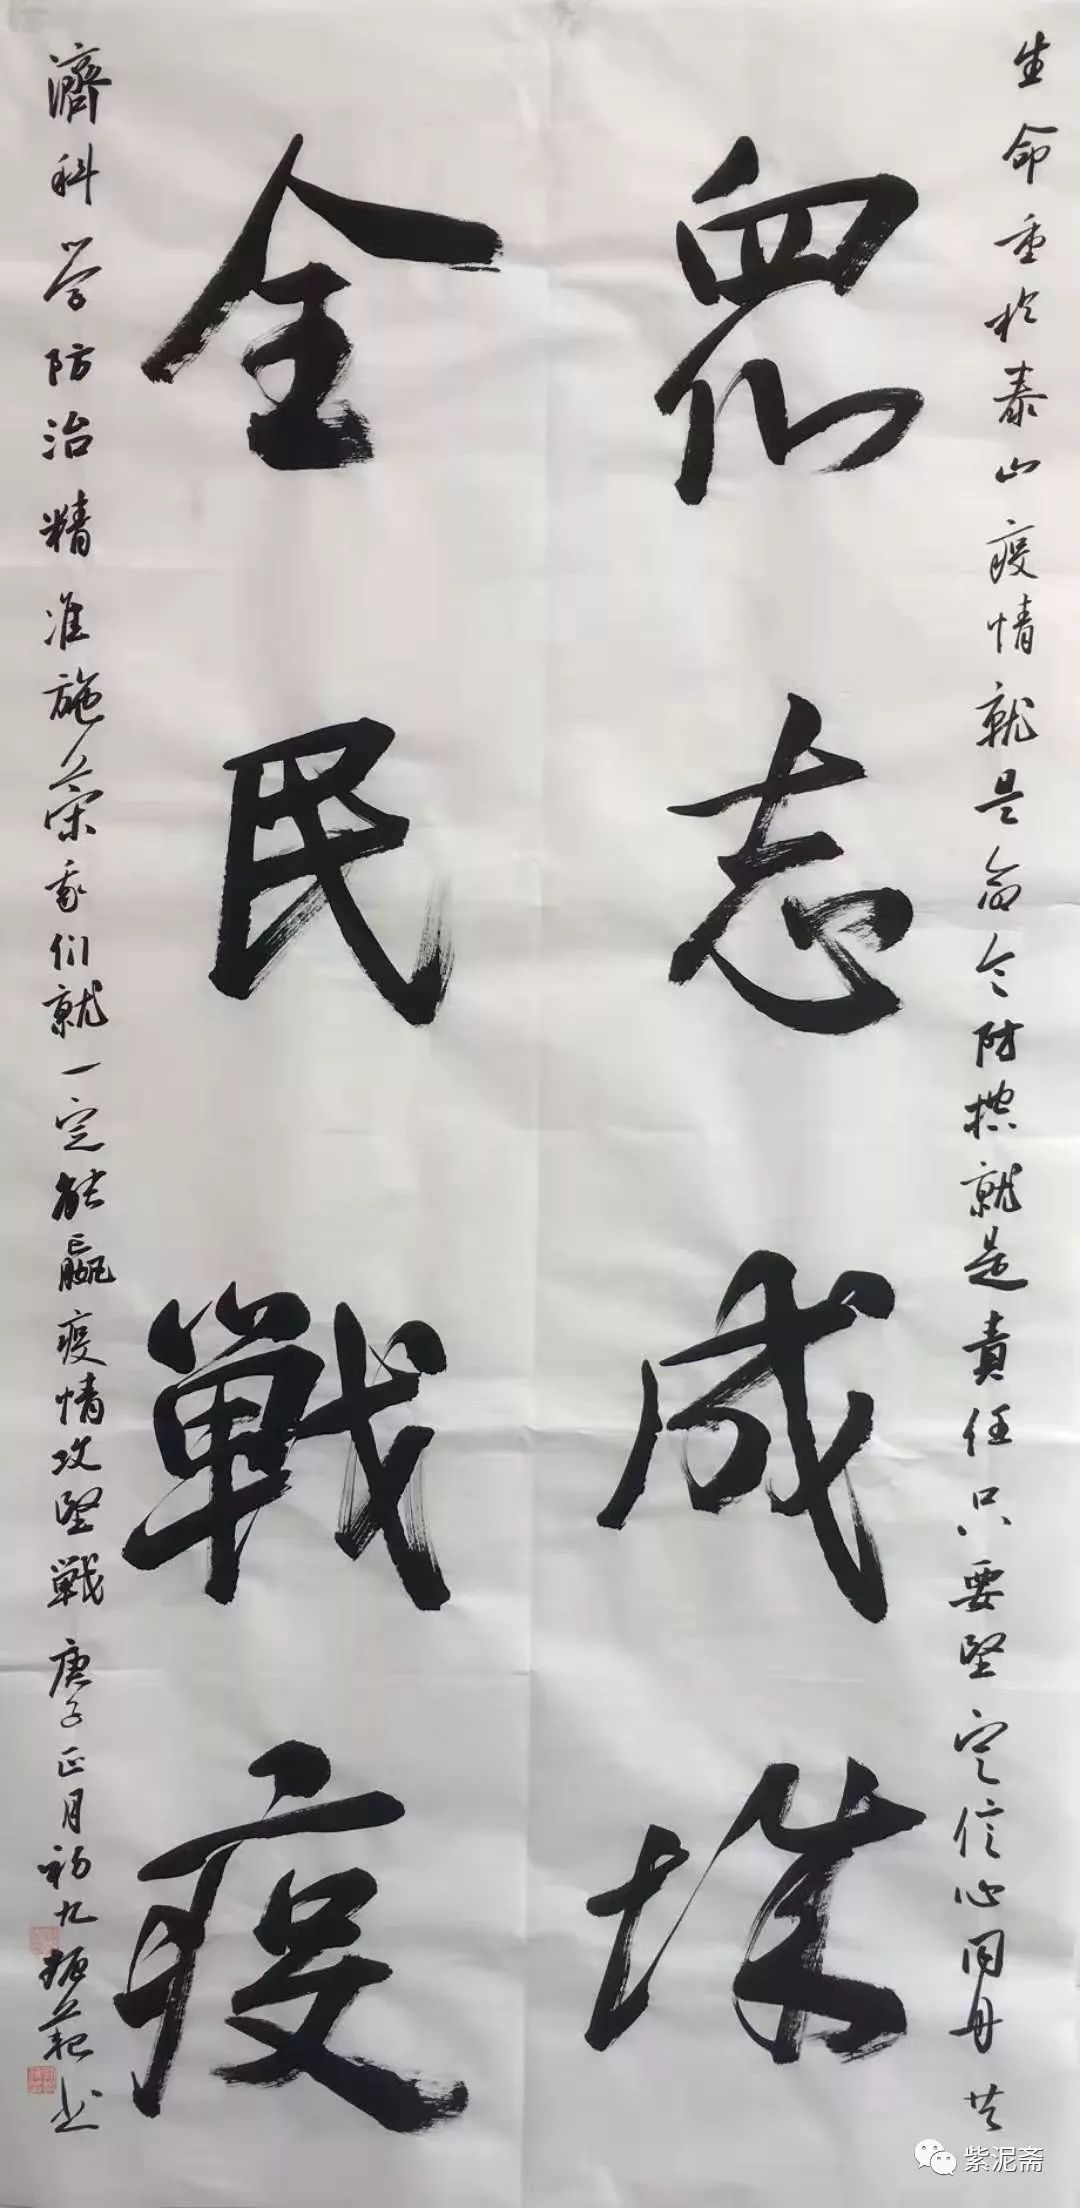 生命重於泰山疫情就是命令防控就是責任只要堅定信心同舟共
衆志成城
全民戦疫
濟科学防治精准施策我们就一定能贏疫情攻堅戦庚子正月初九振範书
紫泥斋